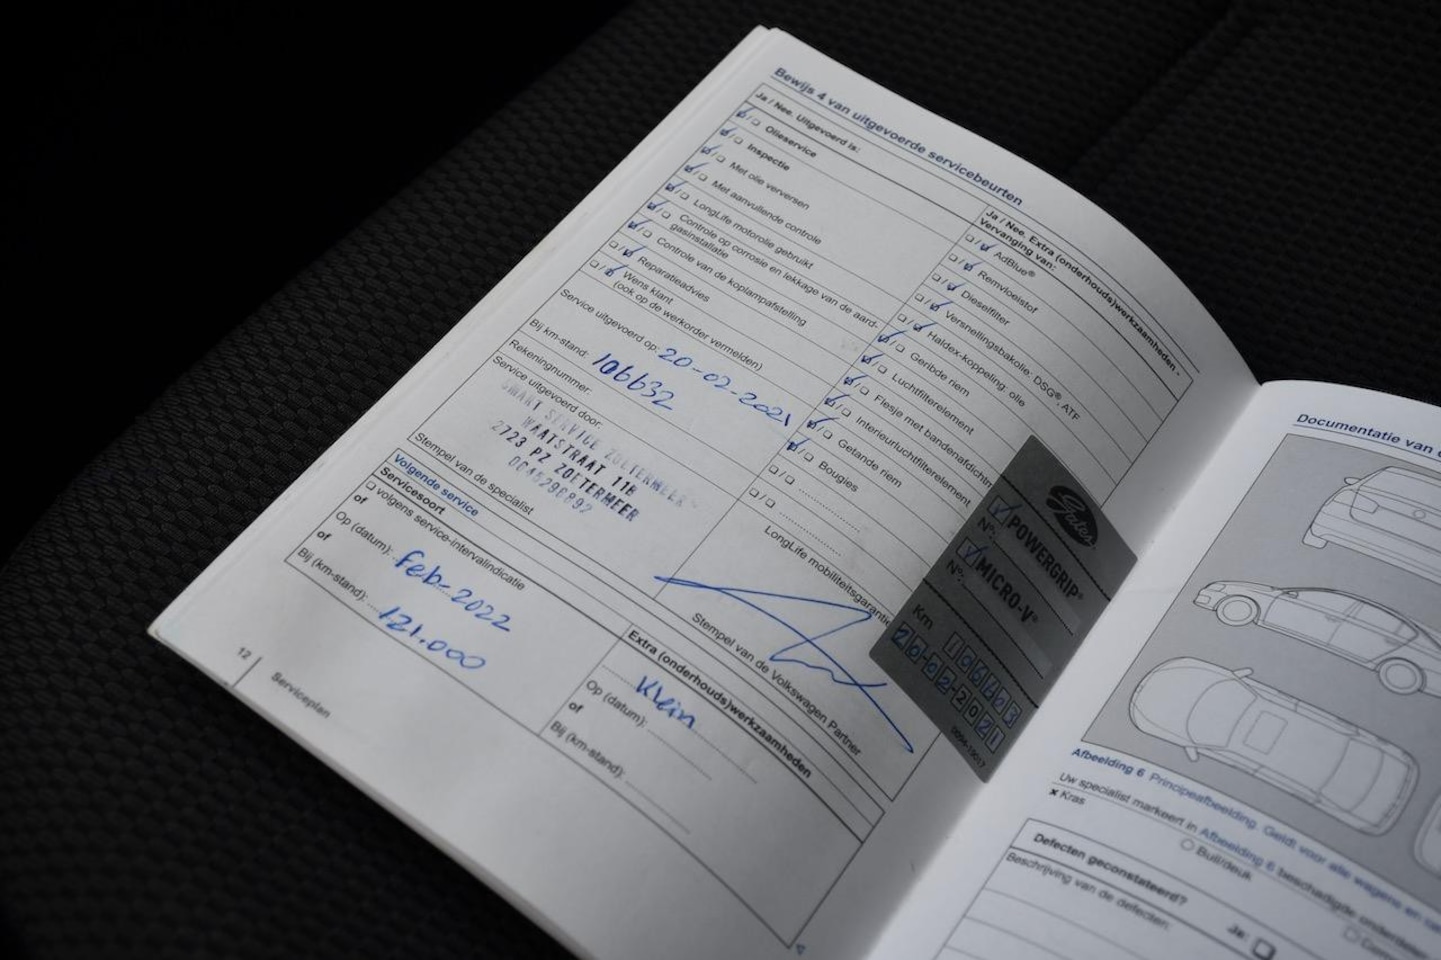 Bewijs 4 van uitgevoerde servicebeurten
Ja / Nee, Uitgevoerd is:
Olieservice
Inspectie
Met olie verversen
Met aanvullende controle
LongLife motorolie gebruikt
Controle op corrosie en lekkage van de aard-
gasinstallatie
Controle van de koplampafstelling
Reparatieadvies
Wens klant
(ook op de werkorder vermelden)
Service uitgevoerd op: 20-02-2021
Bij km-stand: 106632
Rekeningnummer:
Service uitgevoerd door:
SMART SERVICE ZOETERMEER
WAATSTRAAT 11B
2723 PZ ZOETERMEER
Stempel van de specialist
Ja / Nee, Extra (onderhouds)werkzaamheden -
Vervanging van:
AdBlue®
Remvloeistof
Dieselfilter
Versnellingsbakolie: DSG®, ATF
Haldex-koppeling: olie
Geribde riem
Luchtfilterelement
Flesje met bandenafdichtin
Interieurluchtfilterelement
Getande riem
Bougies
LongLife mobiliteitsgarantie
Stempel van de Volkswagen Partner
Gates
POWERGRIP®
N°:
MICRO-V®
N°:
Km
20-02-2021
Volgende service
Servicesoort
volgens service-intervalindicatie
of
Op (datum): feb-2022
of
Bij (km-stand): 121.000
Extra (onderhouds)werkzaamheden
Klein
Op (datum):
of
Bij (km-stand):
12
Serviceplan
Documentatie van
Afbeelding 6 Principeafbeelding. Geldt voor alle wagens en
Uw specialist markeert in Afbeelding 6 beschadigde onderdelen
x Kras
Buil/deuk
Defecten geconstateerd?
Ja:
Beschrijving van de defecten: